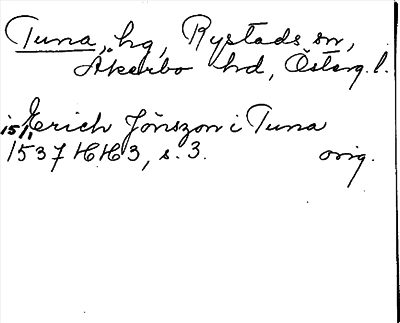 Tuna, hg, Rystads sn,
Åkerbo hd, Österg. l.
15/1 Jerich Jönszon i Tuna
1537 HH3, s. 3. orig.